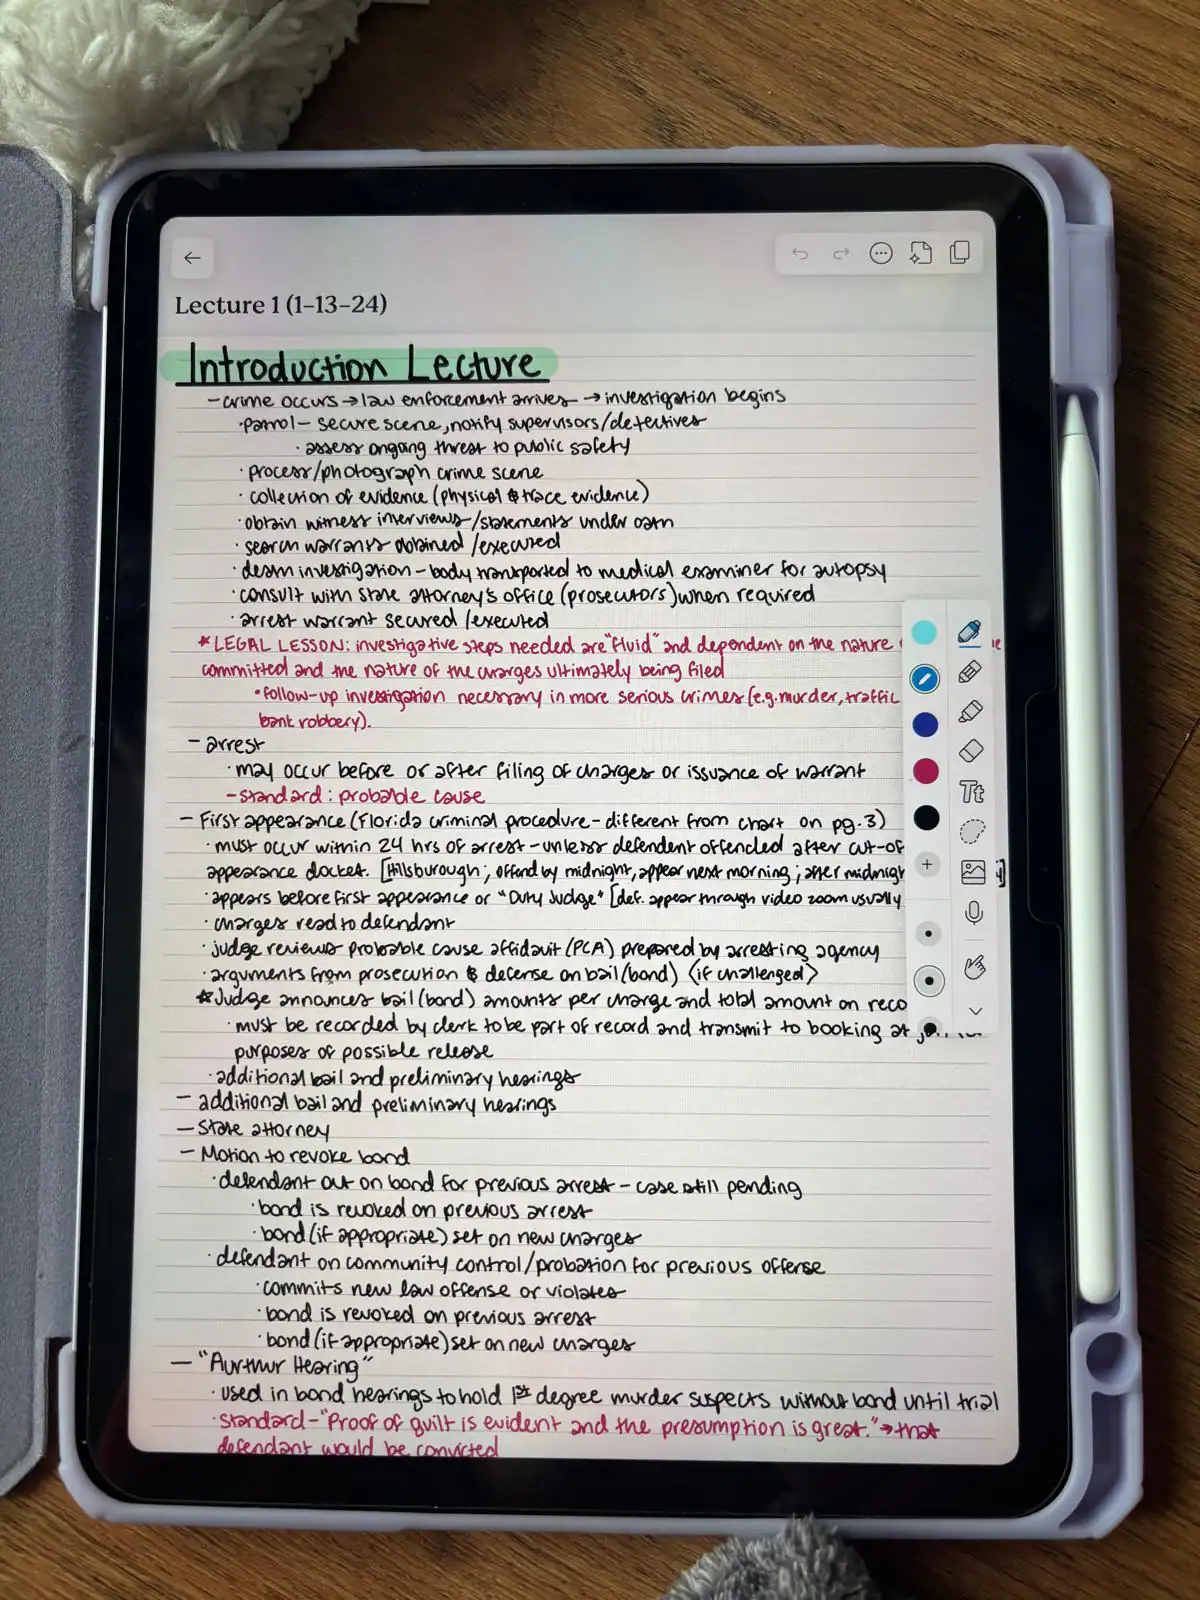 Lecture 1 (1-13-24)
Introduction Lecture
- crime occurs → law enforcement arrives → investigation begins
· patrol - secure scene, notify supervisors/detectives
· assess ongoing threat to public safety
· process/photograph crime scene
· collection of evidence (physical & trace evidence)
· obtain witness interviews/statements under oath
· search warrants obtained/executed
· death investigation - body transported to medical examiner for autopsy
· consult with state attorney's office (prosecutors) when required
· arrest warrant secured/executed
* LEGAL LESSON: investigative steps needed are "fluid" and dependent on the nature
committed and the nature of the charges ultimately being filed
· follow-up investigation necessary in more serious crimes (e.g. murder, traffic
bank robbery).
- arrest
· may occur before or after filing of charges or issuance of warrant
- standard: probable cause
- First appearance (Florida criminal procedure - different from chart on pg. 3)
· must occur within 24 hrs of arrest - unless defendent offended after cut-of
appearance docket. [Hillsborough; offend by midnight, appear next morning; after midnigh
· appears before first appearance or "Duty Judge" [def. appear through video zoom usually
· charges read to defendant
· judge reviews probable cause affidavit (PCA) prepared by arresting agency
· arguments from prosecution & defense on bail (bond) (if challenged)
* Judge annonces bail (bond) amounts per charge and total amount on reco
· must be recorded by clerk to be part of record and transmit to booking at
purposes of possible release
· additional bail and preliminary hearings
- additional bail and preliminary hearings
- State attorney
- Motion to revoke bond
· defendant out on bond for previous arrest - case still pending
· bond is revoked on previous arrest
· bond (if appropriate) set on new charges
· defendant on community control/probation for previous offense
· commits new law offense or violates
· bond is revoked on previous arrest
· bond (if appropriate) set on new charges
- "Aurthur Hearing"
· used in bond hearings to hold 1st degree murder suspects without bond until trial
· standard - "Proof of guilt is evident and the presumption is great." → that
defendant would be convicted